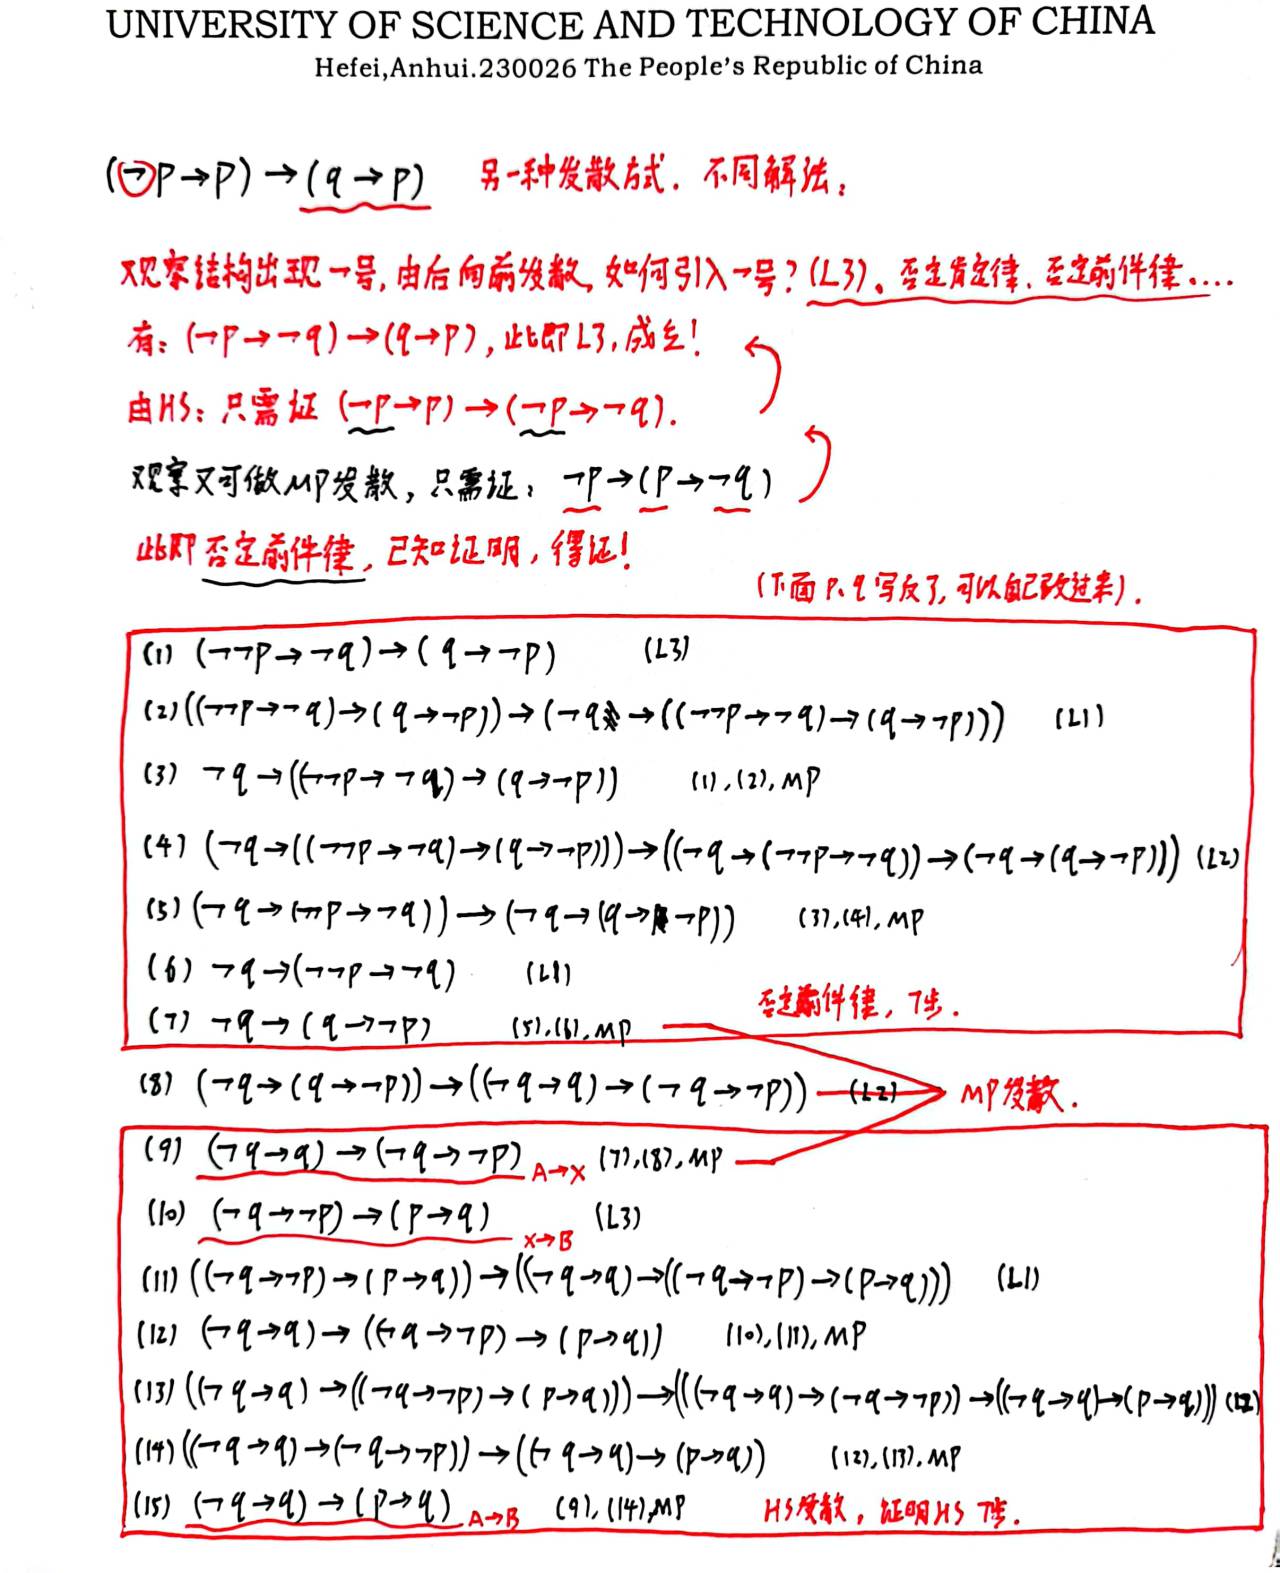 UNIVERSITY OF SCIENCE AND TECHNOLOGY OF CHINA
Hefei,Anhui.230026 The People's Republic of China
(¬p→p)→(q→p) 另一种发散方式. 不同解法:
观察结构出现¬号,由后向前发散,如何引入¬号?(L3)、否定肯定律、否定前件律....
有: (¬p→¬q)→(q→p), 此即L3,成立!
由HS: 只需证 (¬p→p)→(¬p→¬q).
观察又可做MP发散, 只需证: ¬p→(p→¬q)
此即否定前件律, 已知证明, 得证!
(下面p、q写反了,可以自己改过来).
(1) (¬¬p→¬q)→(q→¬p) (L3)
(2) ((¬¬p→¬q)→(q→¬p))→(¬q→((¬¬p→¬q)→(q→¬p))) (L1)
(3) ¬q→((¬¬p→¬q)→(q→¬p)) (1),(2),MP
(4) (¬q→((¬¬p→¬q)→(q→¬p)))→((¬q→(¬¬p→¬q))→(¬q→(q→¬p))) (L2)
(5) (¬q→(¬¬p→¬q))→(¬q→(q→¬p)) (3),(4),MP
(6) ¬q→(¬¬p→¬q) (L1)
否定前件律, 7步.
(7) ¬q→(q→¬p) (5),(6),MP
(8) (¬q→(q→¬p))→((¬q→q)→(¬q→¬p)) (L2) MP发散.
(9) (¬q→q)→(¬q→¬p) A→X (7),(8),MP
(10) (¬q→¬p)→(p→q) X→B (L3)
(11) ((¬q→¬p)→(p→q))→((¬q→q)→((¬q→¬p)→(p→q))) (L1)
(12) (¬q→q)→((¬q→¬p)→(p→q)) (10),(11),MP
(13) ((¬q→q)→((¬q→¬p)→(p→q)))→(((¬q→q)→(¬q→¬p))→((¬q→q)→(p→q))) (L2)
(14) ((¬q→q)→(¬q→¬p))→((¬q→q)→(p→q)) (12),(13),MP
(15) (¬q→q)→(p→q) A→B (9),(14),MP HS发散, 证明HS 7步.